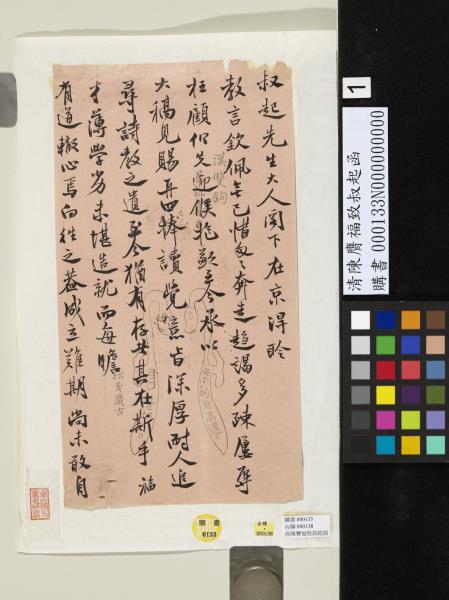 叔起先生大人閣下在京得聆
教言欽佩無已惜匆匆奔走趨謁多疎屢辱
枉顧仍失迎候抱歉至今承以
大稿見賜再四捧讀覺意旨深厚耐人追
尋詩教之遺至今猶有存其在斯乎福
才薄學劣未堪造就而每瞻
有道輒心焉向往之蓋成立難期尚未敢自
漢雙鉤
清陳膺福致叔起函
購書 000133N000000000
1
購書
0133
台購
000138
購書 000133
台購 000138
清陳膺福致叔起函